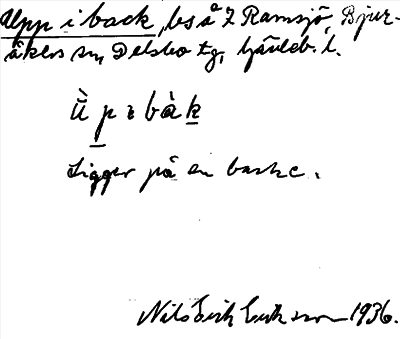 Upp i back, bs å 7 Ramsjö, Bjur-
åkers sn, Delsbo tg, Gävleb. l.
Ù p ɩ bàk
Ligger på en backe.
Nils Erik Eriksson 1936.